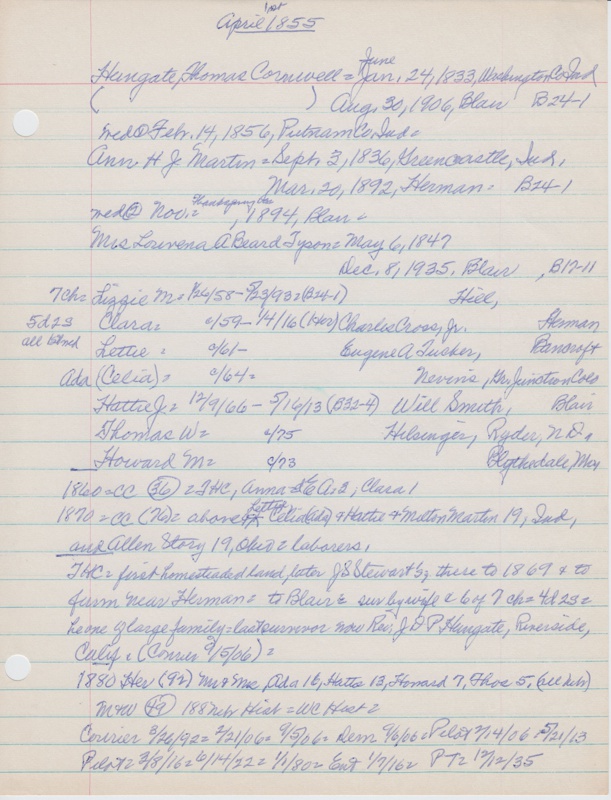 1st
April 1855
June
Hungate, Thomas Cornwell = Jan. 24, 1833, Washington Co Ind
( ) Aug. 30, 1906, Blair B24-1
med ① Feb. 14, 1856, Putnam Co, Ind =
Ann. H J Martin = Sept. 3, 1836, Greencastle, Ind.
Mar. 20, 1892, Herman = B24-1
med ② Nov. = Thanksgiving , 1894, Blair =
Mrs Louvena A Beard Tyson = May 6, 1847
Dec. 8, 1935. Blair , B17-11
7 ch = Lizzie M = 1/26/58 - 5/23/93 = (B24-1) Hill,
5d 2s Clara = c/59 - 1/4/16 (Her) Charles Cross, Jr. Herman
all listed Lettie = c/61 - Eugene A Tucker, Bancroft
Ada (Celia) = c/64 = Nevins, Gr Junction Colo
Hattie J = 12/9/66 - 5/16/13 (B32-4) Will Smith, Blair
Thomas W = c/75 Hilsinger, Ryder, N D
Howard M = c/73 Blythdale, Mo
1860 = CC (36) = THC, Anna 26 A = 2, Clara 1
1870 = CC (76) = above Lettie Celia (Ada) & Hattie & Milton Martin 19, Ind,
and Allen Story 19, Ohio = laborers.
THC = first homesteaded land, later J S Stewart's, there to 1869 & to
farm near Herman = to Blair = sur by wife & 6 of 7 ch = 4d 2s =
he one of large family = last survivor now Rev. J D P Hungate, Riverside,
Calif. (Courier 9/15/06) =
1880 Her (92) Mr & Mrs, Ada 16, Hattie 13, Howard 7, Thos 5, (all Nebr)
M & W (49) 188 Nebr Hist = WC Hist =
Courier 3/26/92 = 2/21/06 = 9/5/06 = Dem 9/6/06 = Pilot 2/14/06 5/21/13
Pilot = 3/8/16 = 6/14/22 = 1/1/80 = Ent 1/7/16 = PT = 12/12/35